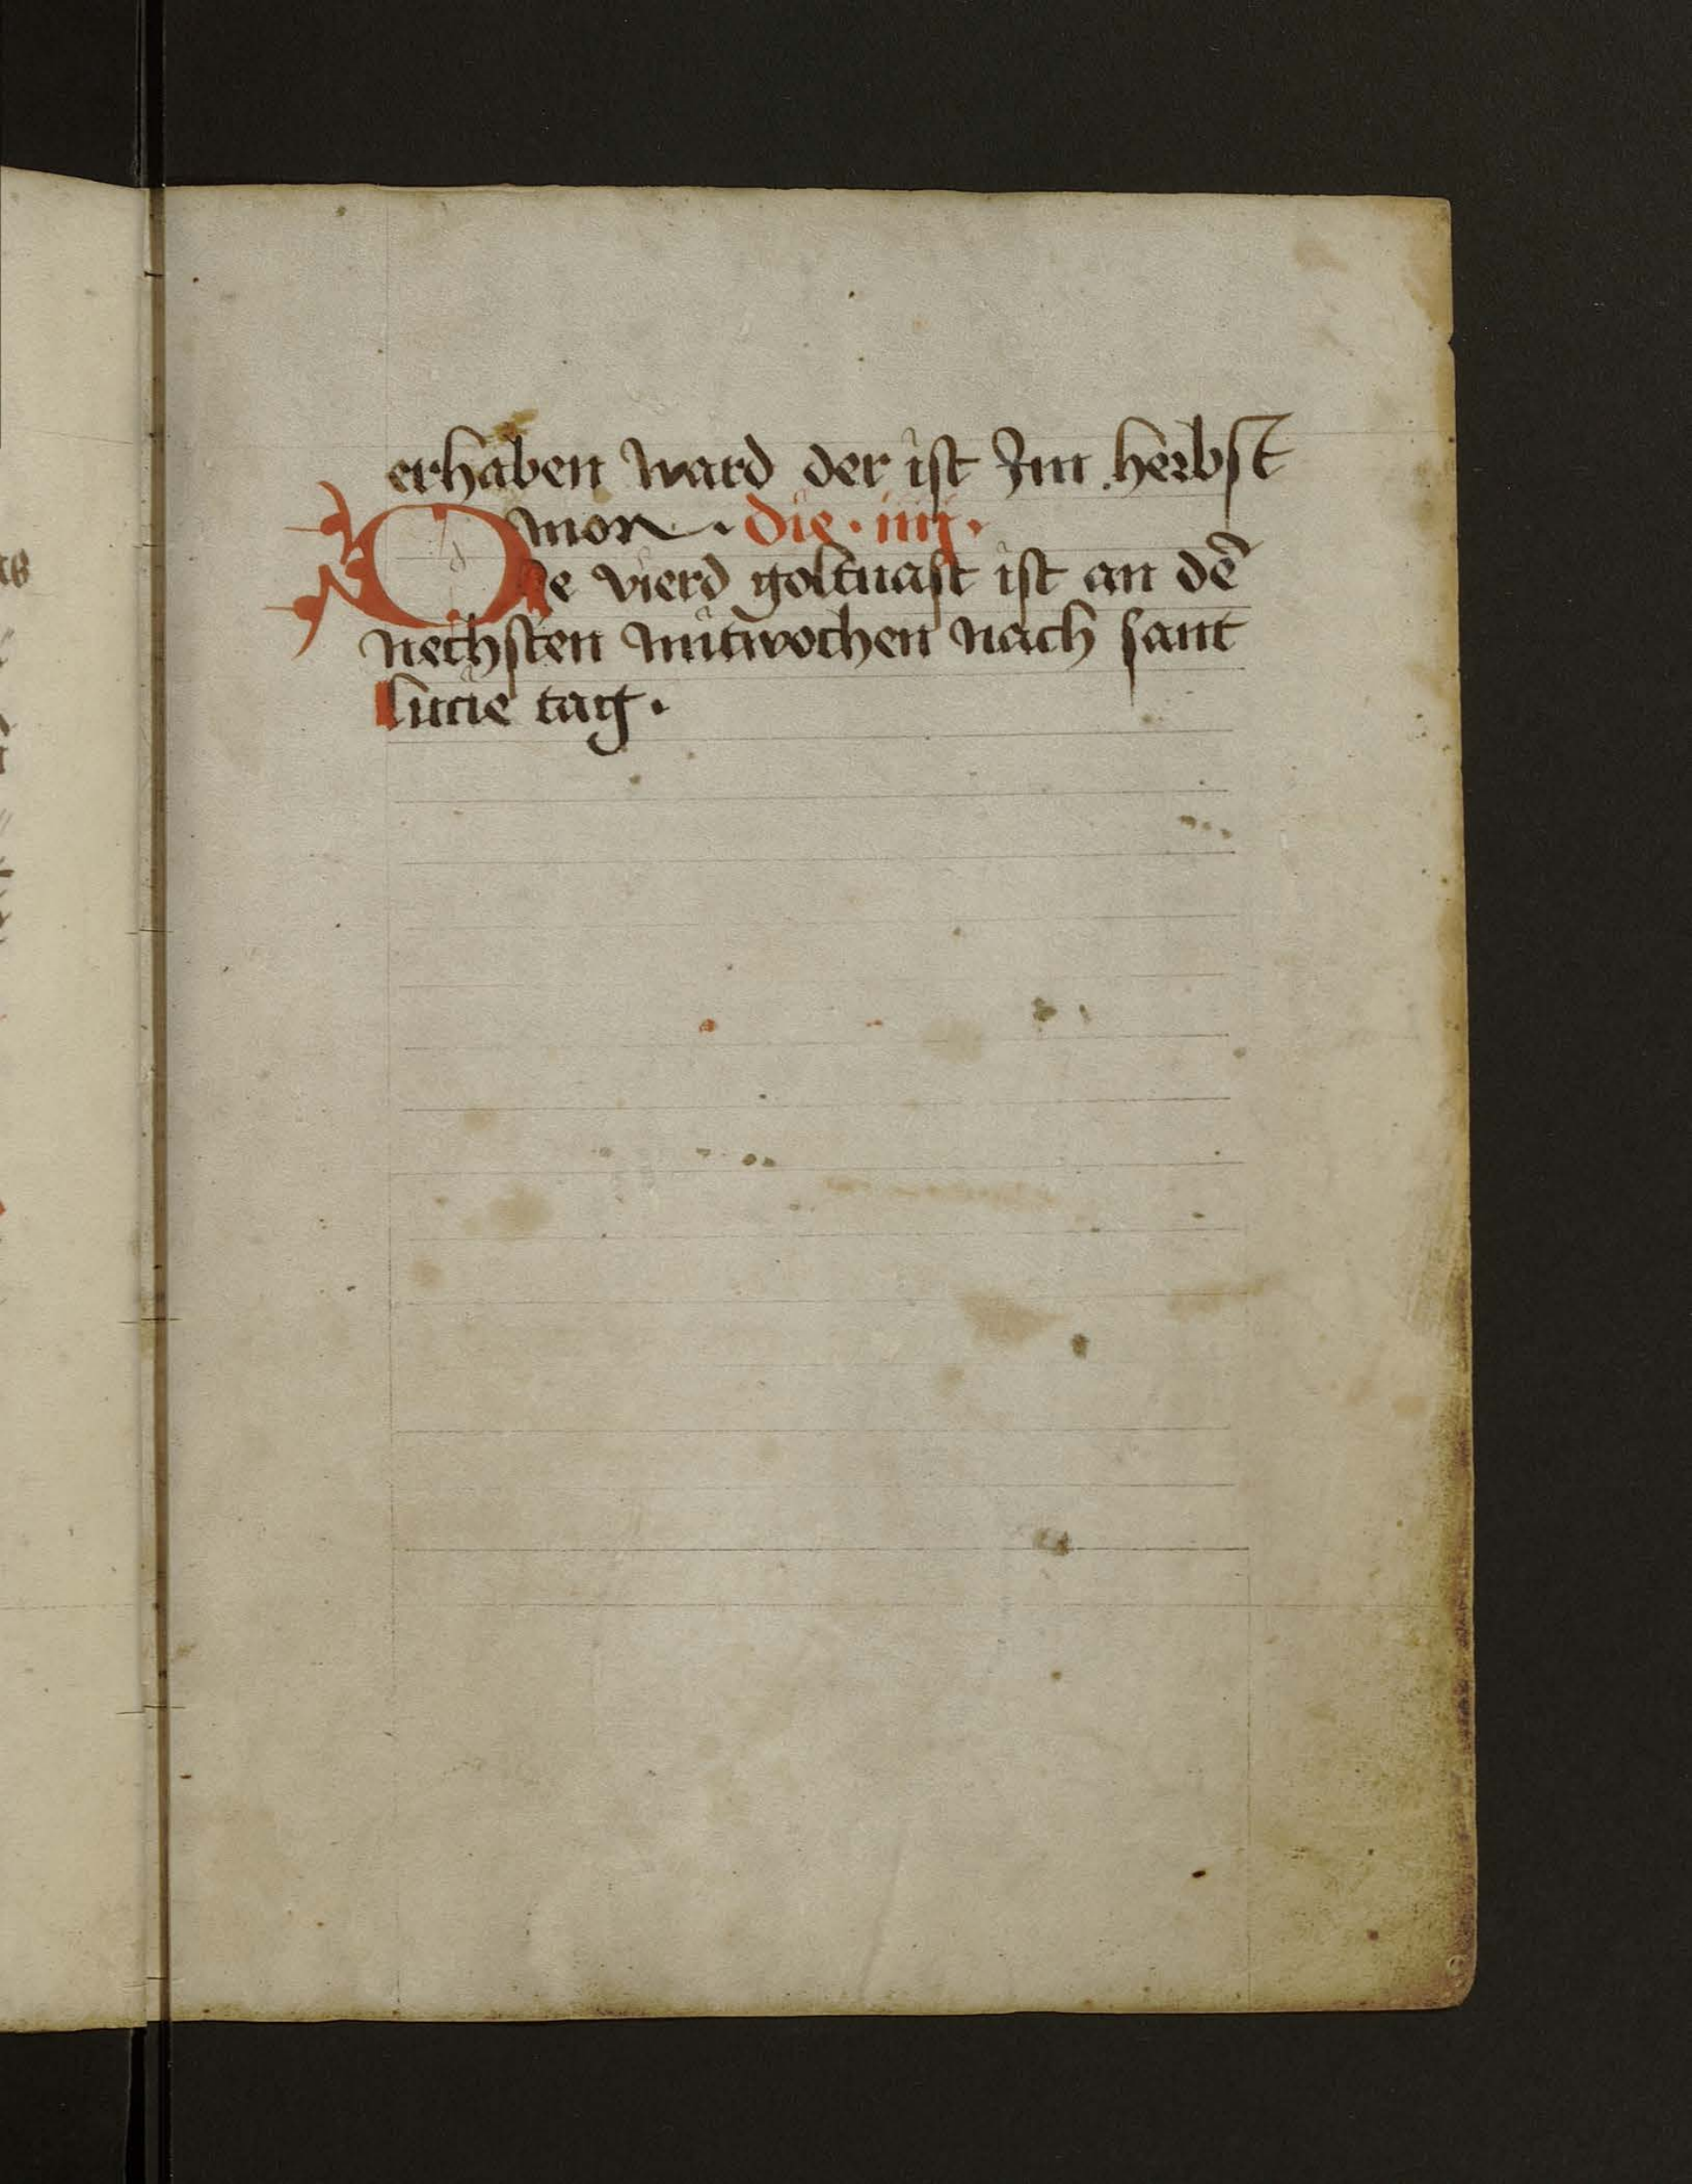 erhaben ward der ist Im herbst
mon · die · iiij ·
Die vierd goltuast ist an dē
nechsten mitwochen nach sant
lucie tag ·